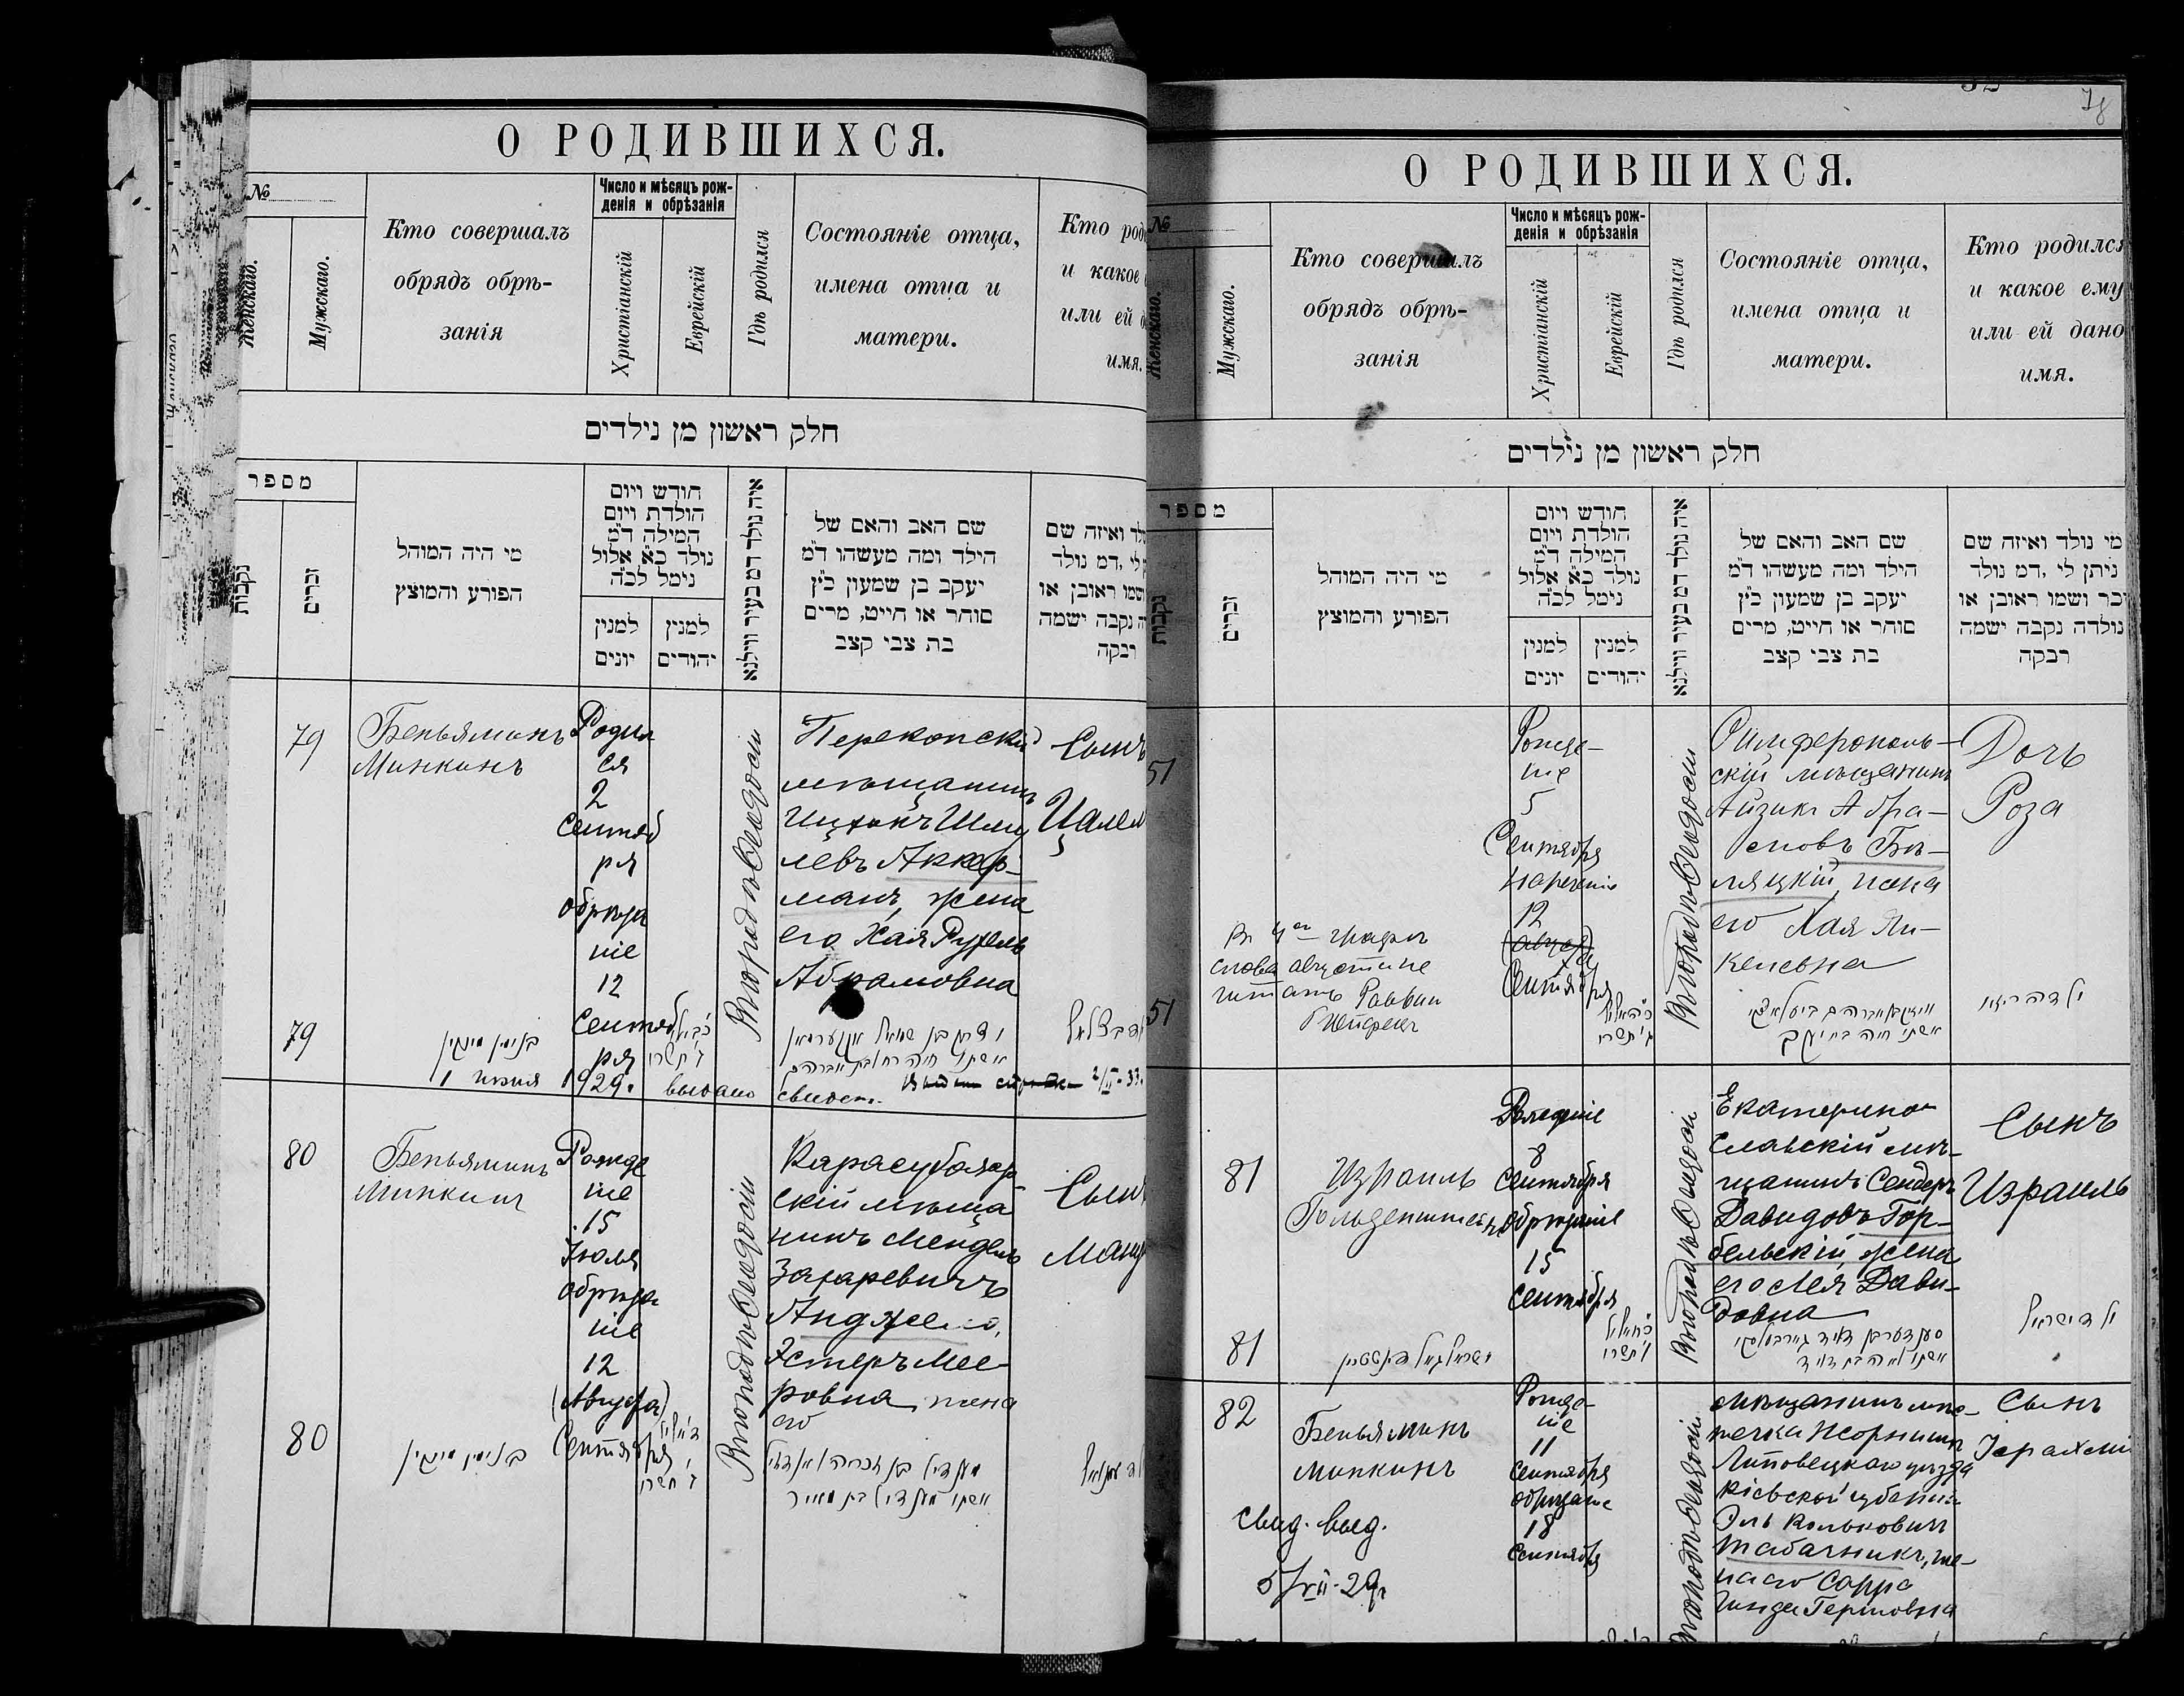 О РОДИВШИХСЯ.
№
Женскаго.
Мужскаго.
Кто совершалъ
обрядъ обрѣ-
занія
Число и мѣсяцъ рож-
денія и обрѣзанія
Христіанскій
Еврейскій
Гдѣ родился
Состояніе отца,
имена отца и
матери.
Кто род
и какое
или ей
имя.
חלק ראשון מן נילדים
מספר
נקבות
זכרים
מי היה המוהל
הפורע והמוצץ
חודש ויום
הולדת ויום
המילה ד״מ
נולד כ״א אלול
נימל לכ״ה
למנין
יונים
למנין
יהודים
איה נולד דמ בעיר ווילנא
שם האב והאם של
הילד ומה מעשהו ד״מ
יעקב בן שמעון כ״ץ
סוחר או חייט, מרים
בת צבי קצב
לד ואיזה שם
לי ,דמ נולד
ושמו ראובן או
ה נקבה ישמה
רבקה
79
Беньяминъ
Минкинъ
Родил
ся
2
Сентяб
ря
обрѣза
ніе
12
Сентяб
ря
Въ городѣ Ѳеодосіи
Перекопскій
мѣщанинъ
Ицхокъ Шму
левъ Аккер-
манъ, жена
его Хая Рухель
Абрамовна
Сынъ
Цалел
79
בנימין מינקין
1 июня 1929. выдано свидет.
2/II-33.
80
Беньяминъ
Минкинъ
Рожде
ніе
15
Іюля
обрѣза
ніе
12
(Августа)
Сентября
Въ городѣ Ѳеодосіи
Карасубазар-
скій мѣща
нинъ Мендель
Захаревичъ
Анджело,
Эстеръ Мее-
ровна жена
его
Сынъ
80
בנימין מינקין
78
О РОДИВШИХСЯ.
№
Женскаго.
Мужскаго.
Кто совершалъ
обрядъ обрѣ-
занія
Число и мѣсяцъ рож-
денія и обрѣзанія
Христіанскій
Еврейскій
Гдѣ родился
Состояніе отца,
имена отца и
матери.
Кто родился
и какое ему
или ей дано
имя.
חלק ראשון מן נילדים
מספר
נקבות
זכרים
מי היה המוהל
הפורע והמוצץ
חודש ויום
הולדת ויום
המילה ד״מ
נולד כ״א אלול
נימל לכ״ה
למנין
יונים
למנין
יהודים
איה נולד דמ בעיר ווילנא
שם האב והאם של
הילד ומה מעשהו ד״מ
יעקב בן שמעון כ״ץ
סוחר או חייט, מרים
בת צבי קצב
מי נולד ואיזה שם
ניתן לי ,דמ נולד
זכר ושמו ראובן או
נולדה נקבה ישמה
רבקה
51
Рожде-
ніе
5
Сентября
нареченіе
12
Сентября
Въ городѣ Ѳеодосіи
Симферополь-
скій мѣщанинъ
Айзикъ Абра-
мовъ Бѣ-
ляцкій, жена
его Хая Ян-
келевна
Дочь
Роза
графѣ
слова
читать Раввин
51
81
Израиль
Гольденштейнъ
Рожденіе
8
Сентября
Обрѣзаніе
15
Сентября
Въ городѣ Ѳеодосіи
Екатерино-
славскій мѣ-
щанинъ Сендеръ
Давидовъ Гор-
бельскій, жена
его Лея Дави-
довна
Сынъ
Израиль
81
82
Беньяминъ
Минкинъ
Рожде-
ніе
11
Сентября
обрѣзаніе
18
Сентября
Въ городѣ Ѳеодосіи
Мѣщанинъ мѣс-
течка
Липовецкаго уѣзда
Кіевской губерніи
Табачникъ, же-
на его Сарра
Гершовна
Сынъ
Свид. выд.
5/VII-29г